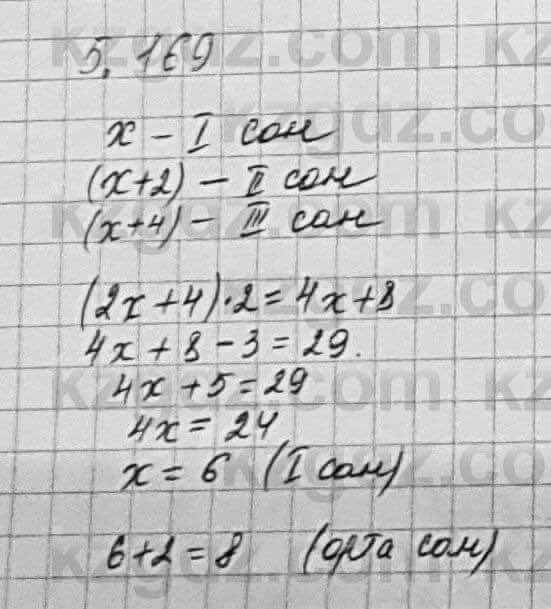 5.169
x - I сан
(x+2) - II сан
(x+4) - III сан
(2x+4)·2=4x+8
4x+8-3=29.
4x+5=29
4x=24
x=6 (I сан)
6+2=8 (орта сан)